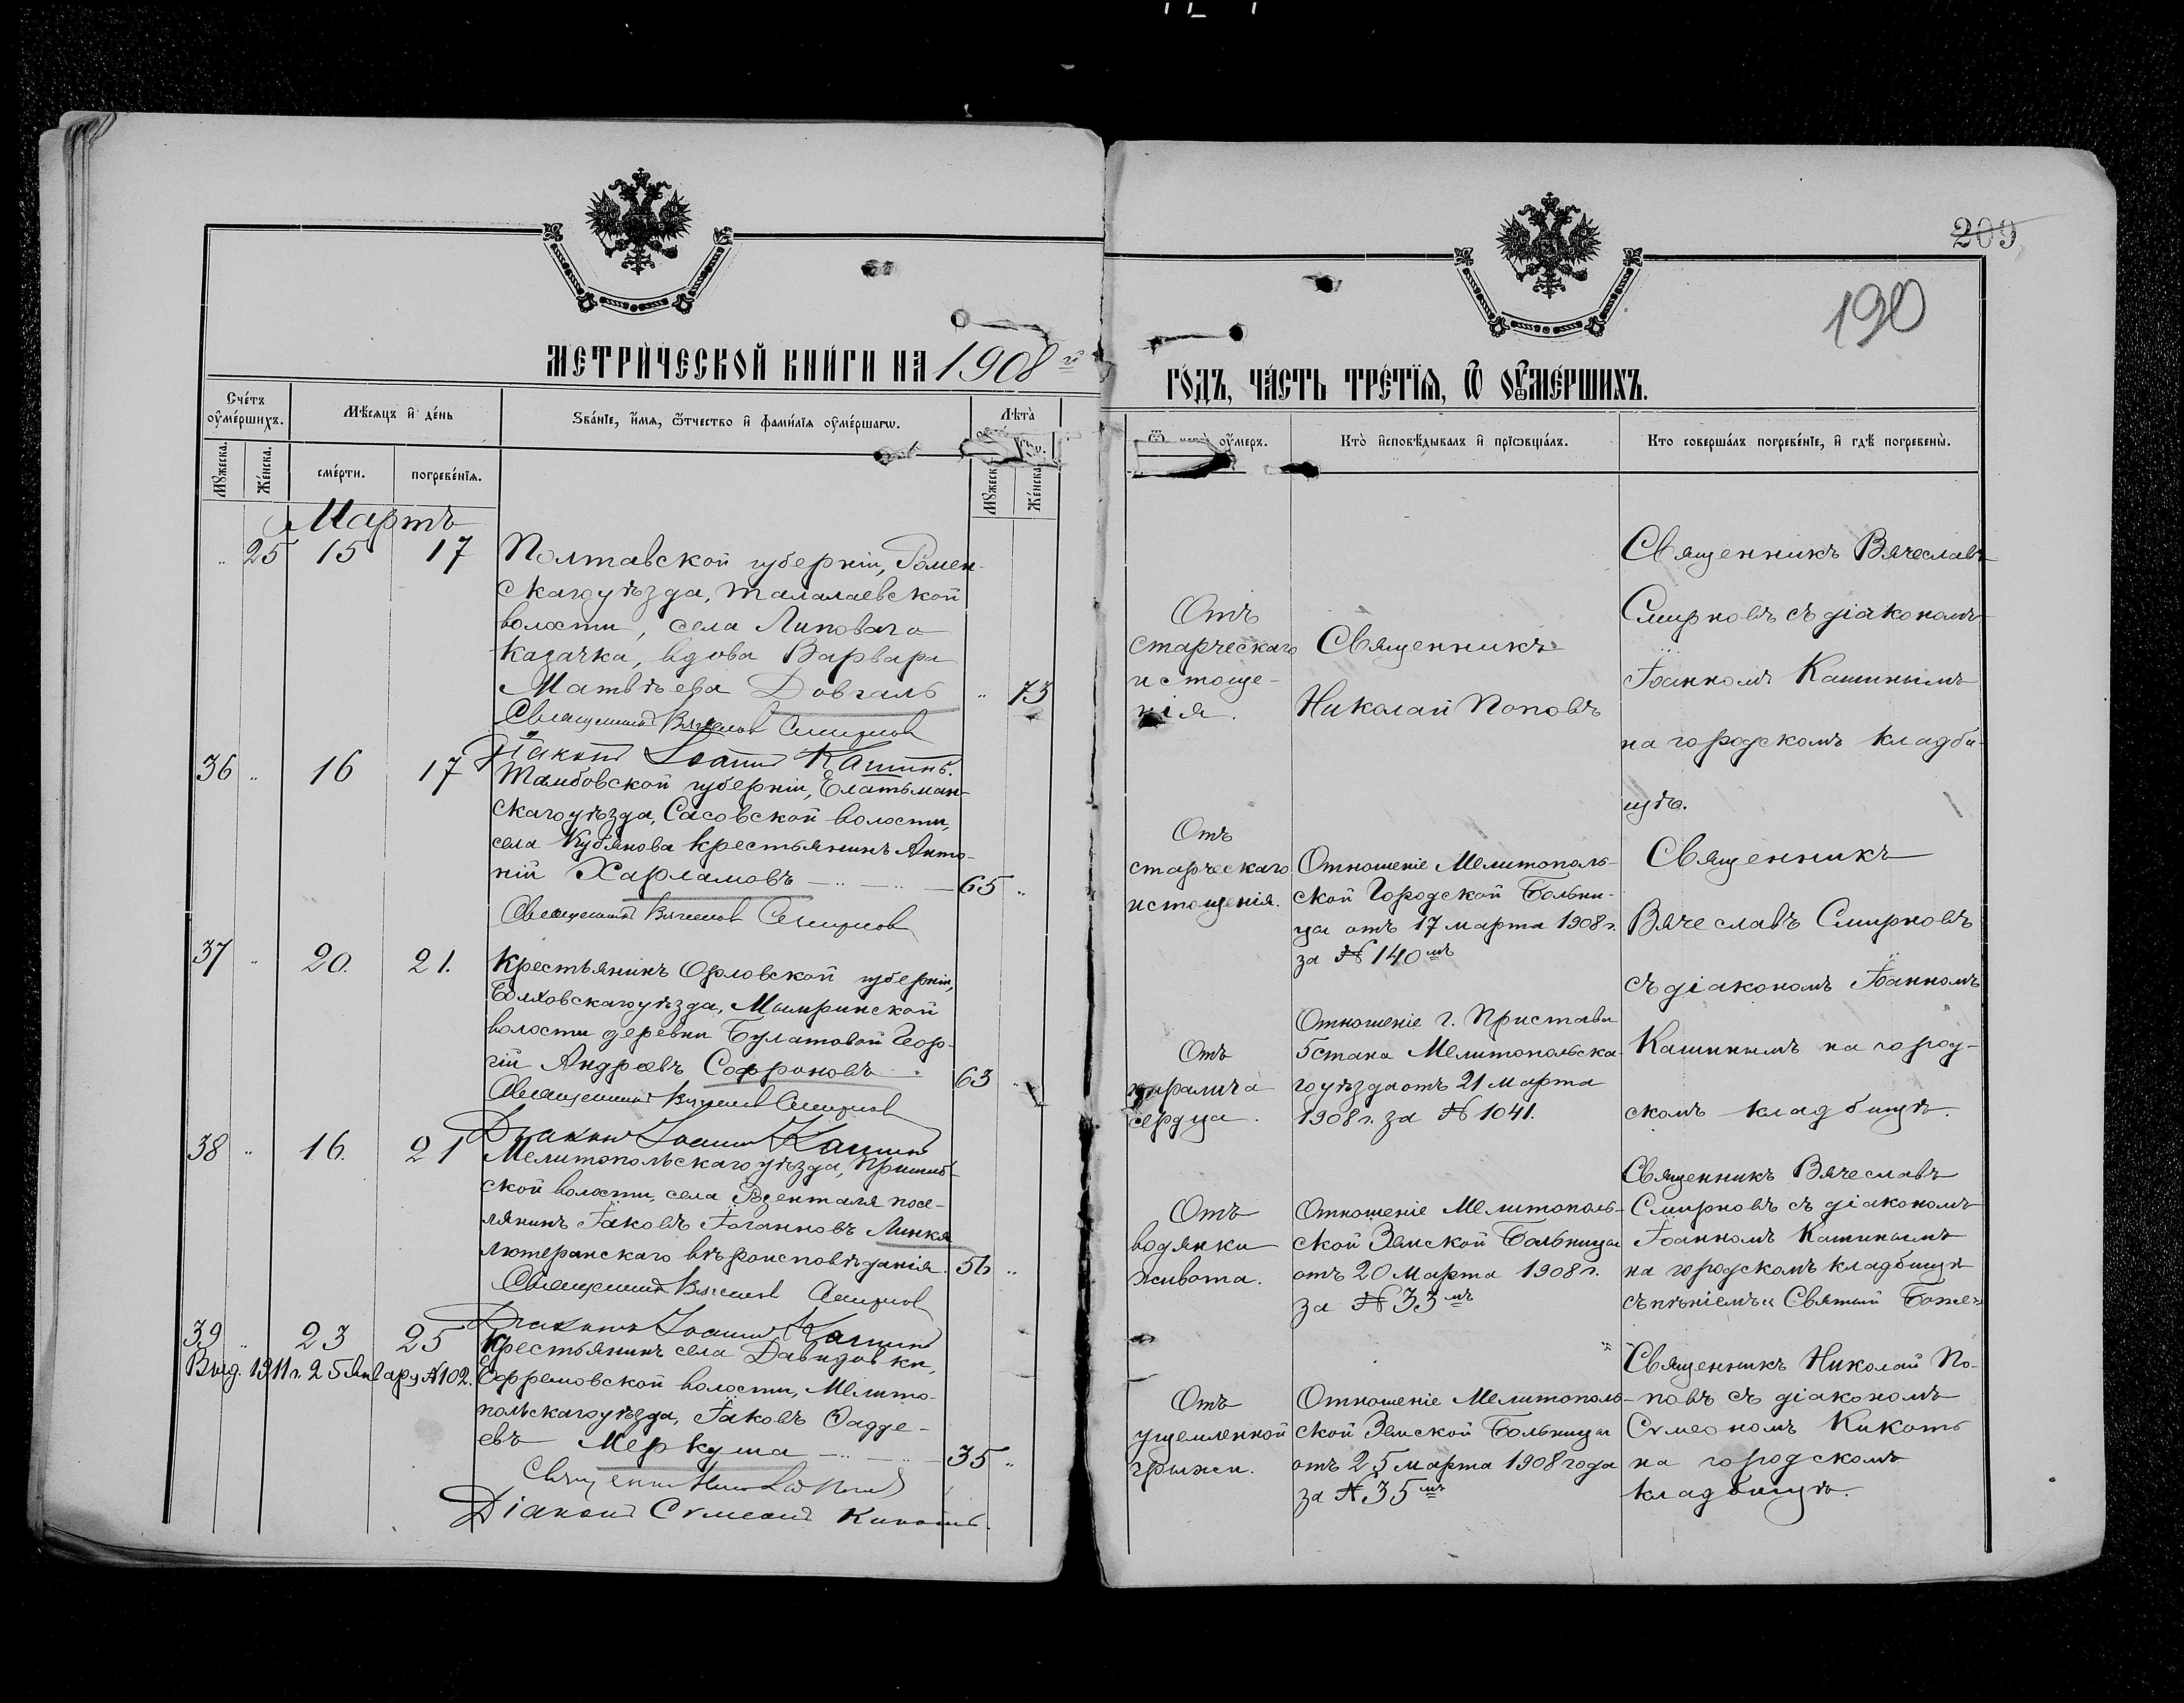 209
190
МЕТРИ́ЧЕСКОЙ КНИ́ГИ НА 1908 й
ГО́ДЪ, ЧА́СТЬ ТРЕ́ТІѦ, Ѿ ОУМЕ́РШИХЪ.
Сче́тъ оумершихъ.
Мѣсяцъ и де́нь
Зва́ніе, и́мя, ѻ́тчество и фами́лія оуме́ршагѡ.
Лѣта̀
Мꙋжеска.
Же́нска.
сме́рти.
погребе́нія.
Мꙋжеск
Же́нска
оу́меръ.
Кто̀ исповѣ́дывалъ и пріѡбща́лъ.
Кто соверша́лъ погребе́ніе, и гдѣ̀ погребены̀.
Мартъ
" 25 15 17
Полтавской губерніи, Ромен-
скаго уѣзда, Талалаевской
волости, села Липоваго
казачка, вдова Варвара
Матвѣева Довгаль " 73
Священникъ Вячеславъ Смирновъ
Діаконъ Іоаннъ Кашинъ.
Отъ
старческаго
истоще-
нія.
Священникъ
Николай Поповъ
Священникъ Вячеславъ
Смирновъ съ діакономъ
Іоанномъ Кашинымъ
на городскомъ кладби-
щѣ.
36 " 16 17
Тамбовской губерніи, Елатьман-
скаго уѣзда, Сасовской волости,
села Кубянова крестьянинъ Анто-
ній Харламовъ 65 "
Священникъ Вячеславъ Смирновъ
Отъ
старческаго
истощенія.
Отношеніе Мелитополь-
ской Городской Больни-
цы отъ 17 марта 1908 г.
за № 140 мъ
Священникъ
Вячеславъ Смирновъ
съ діакономъ Іоанномъ
Кашинымъ на город-
скомъ кладбищѣ.
37 " 20. 21.
Крестьянинъ Орловской губерніи,
Болховскаго уѣзда, Мымринской
волости деревни Булатовой Геор-
гій Андреевъ Софроновъ 63 "
Священникъ Вячеславъ Смирновъ
Діаконъ Іоаннъ Кашинъ
Отъ
паралича
сердца.
Отношеніе г. Пристава
5 стана Мелитопольска-
го уѣзда отъ 21 марта
1908 г. за № 1041.
38 " 16. 21
Мелитопольскаго уѣзда, Пришиб-
ской волости, села Розенталя посе-
лянинъ Іаковъ Іоганновъ Линкя
лютеранскаго вѣроисповѣданія. 56 "
Священникъ Вячеславъ Смирновъ
Діаконъ Іоаннъ Кашинъ
Отъ
водянки
живота.
Отношеніе Мелитополь-
ской Земской Больницы
отъ 20 Марта 1908 г.
за № 33 мъ
Священникъ Вячеславъ
Смирновъ съ діакономъ
Іоанномъ Кашинымъ
на городскомъ кладбищѣ
съ пѣніемъ „Святый Боже"
39 " 23 25
Выд. 1911 г. 25 Январу № 102.
Крестьянинъ села Давидовки,
Ефремовской волости, Мелито-
польскаго уѣзда, Іаковъ Ѳадде-
евъ Меркуша 35 "
Священникъ Николай Поповъ
Діаконъ Сѵмеонъ Кикоть.
Отъ
ущемленной
грыжи.
Отношеніе Мелитополь-
ской Земской Больницы
отъ 25 марта 1908 года
за № 35 мъ
Священникъ Николай По-
повъ съ діакономъ
Сѵмеономъ Кикоть
на городскомъ
кладбищѣ.